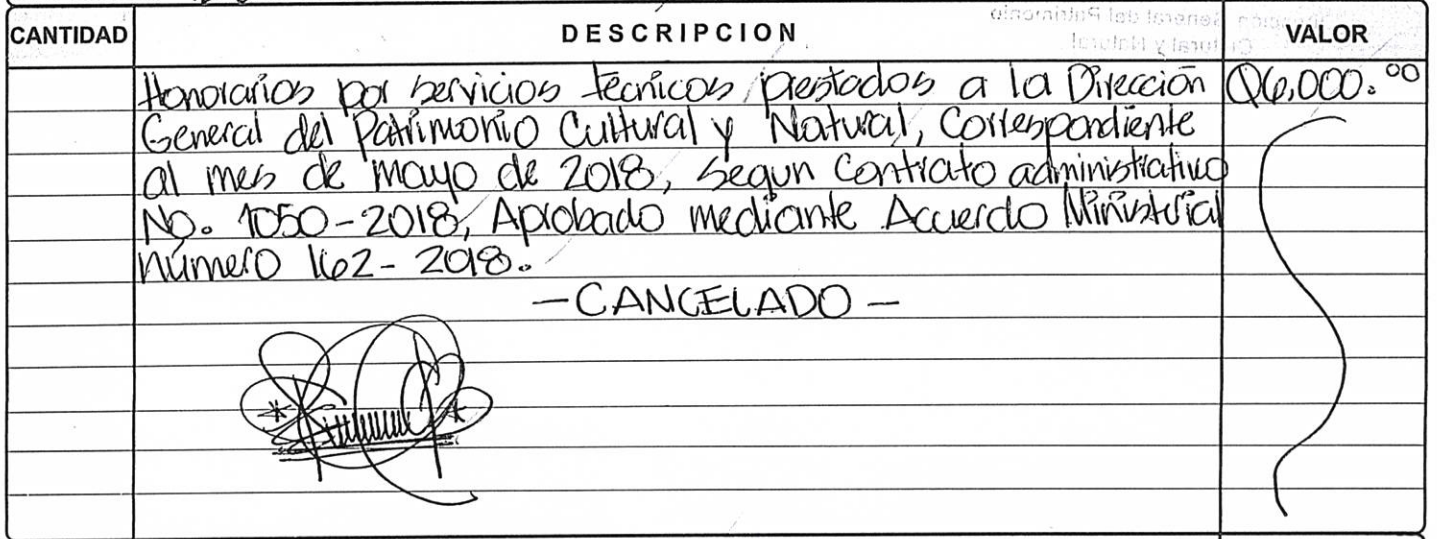 CANTIDAD DESCRIPCION VALOR
Honorarios por servicios técnicos prestados a la Dirección Q6,000.00
General del Patrimonio Cultural y Natural, Correspondiente
al mes de mayo de 2018, Segun Contrato administrativo
No. 1050-2018, Aprobado mediante Acuerdo Ministerial
número 162-2018.
-CANCELADO-